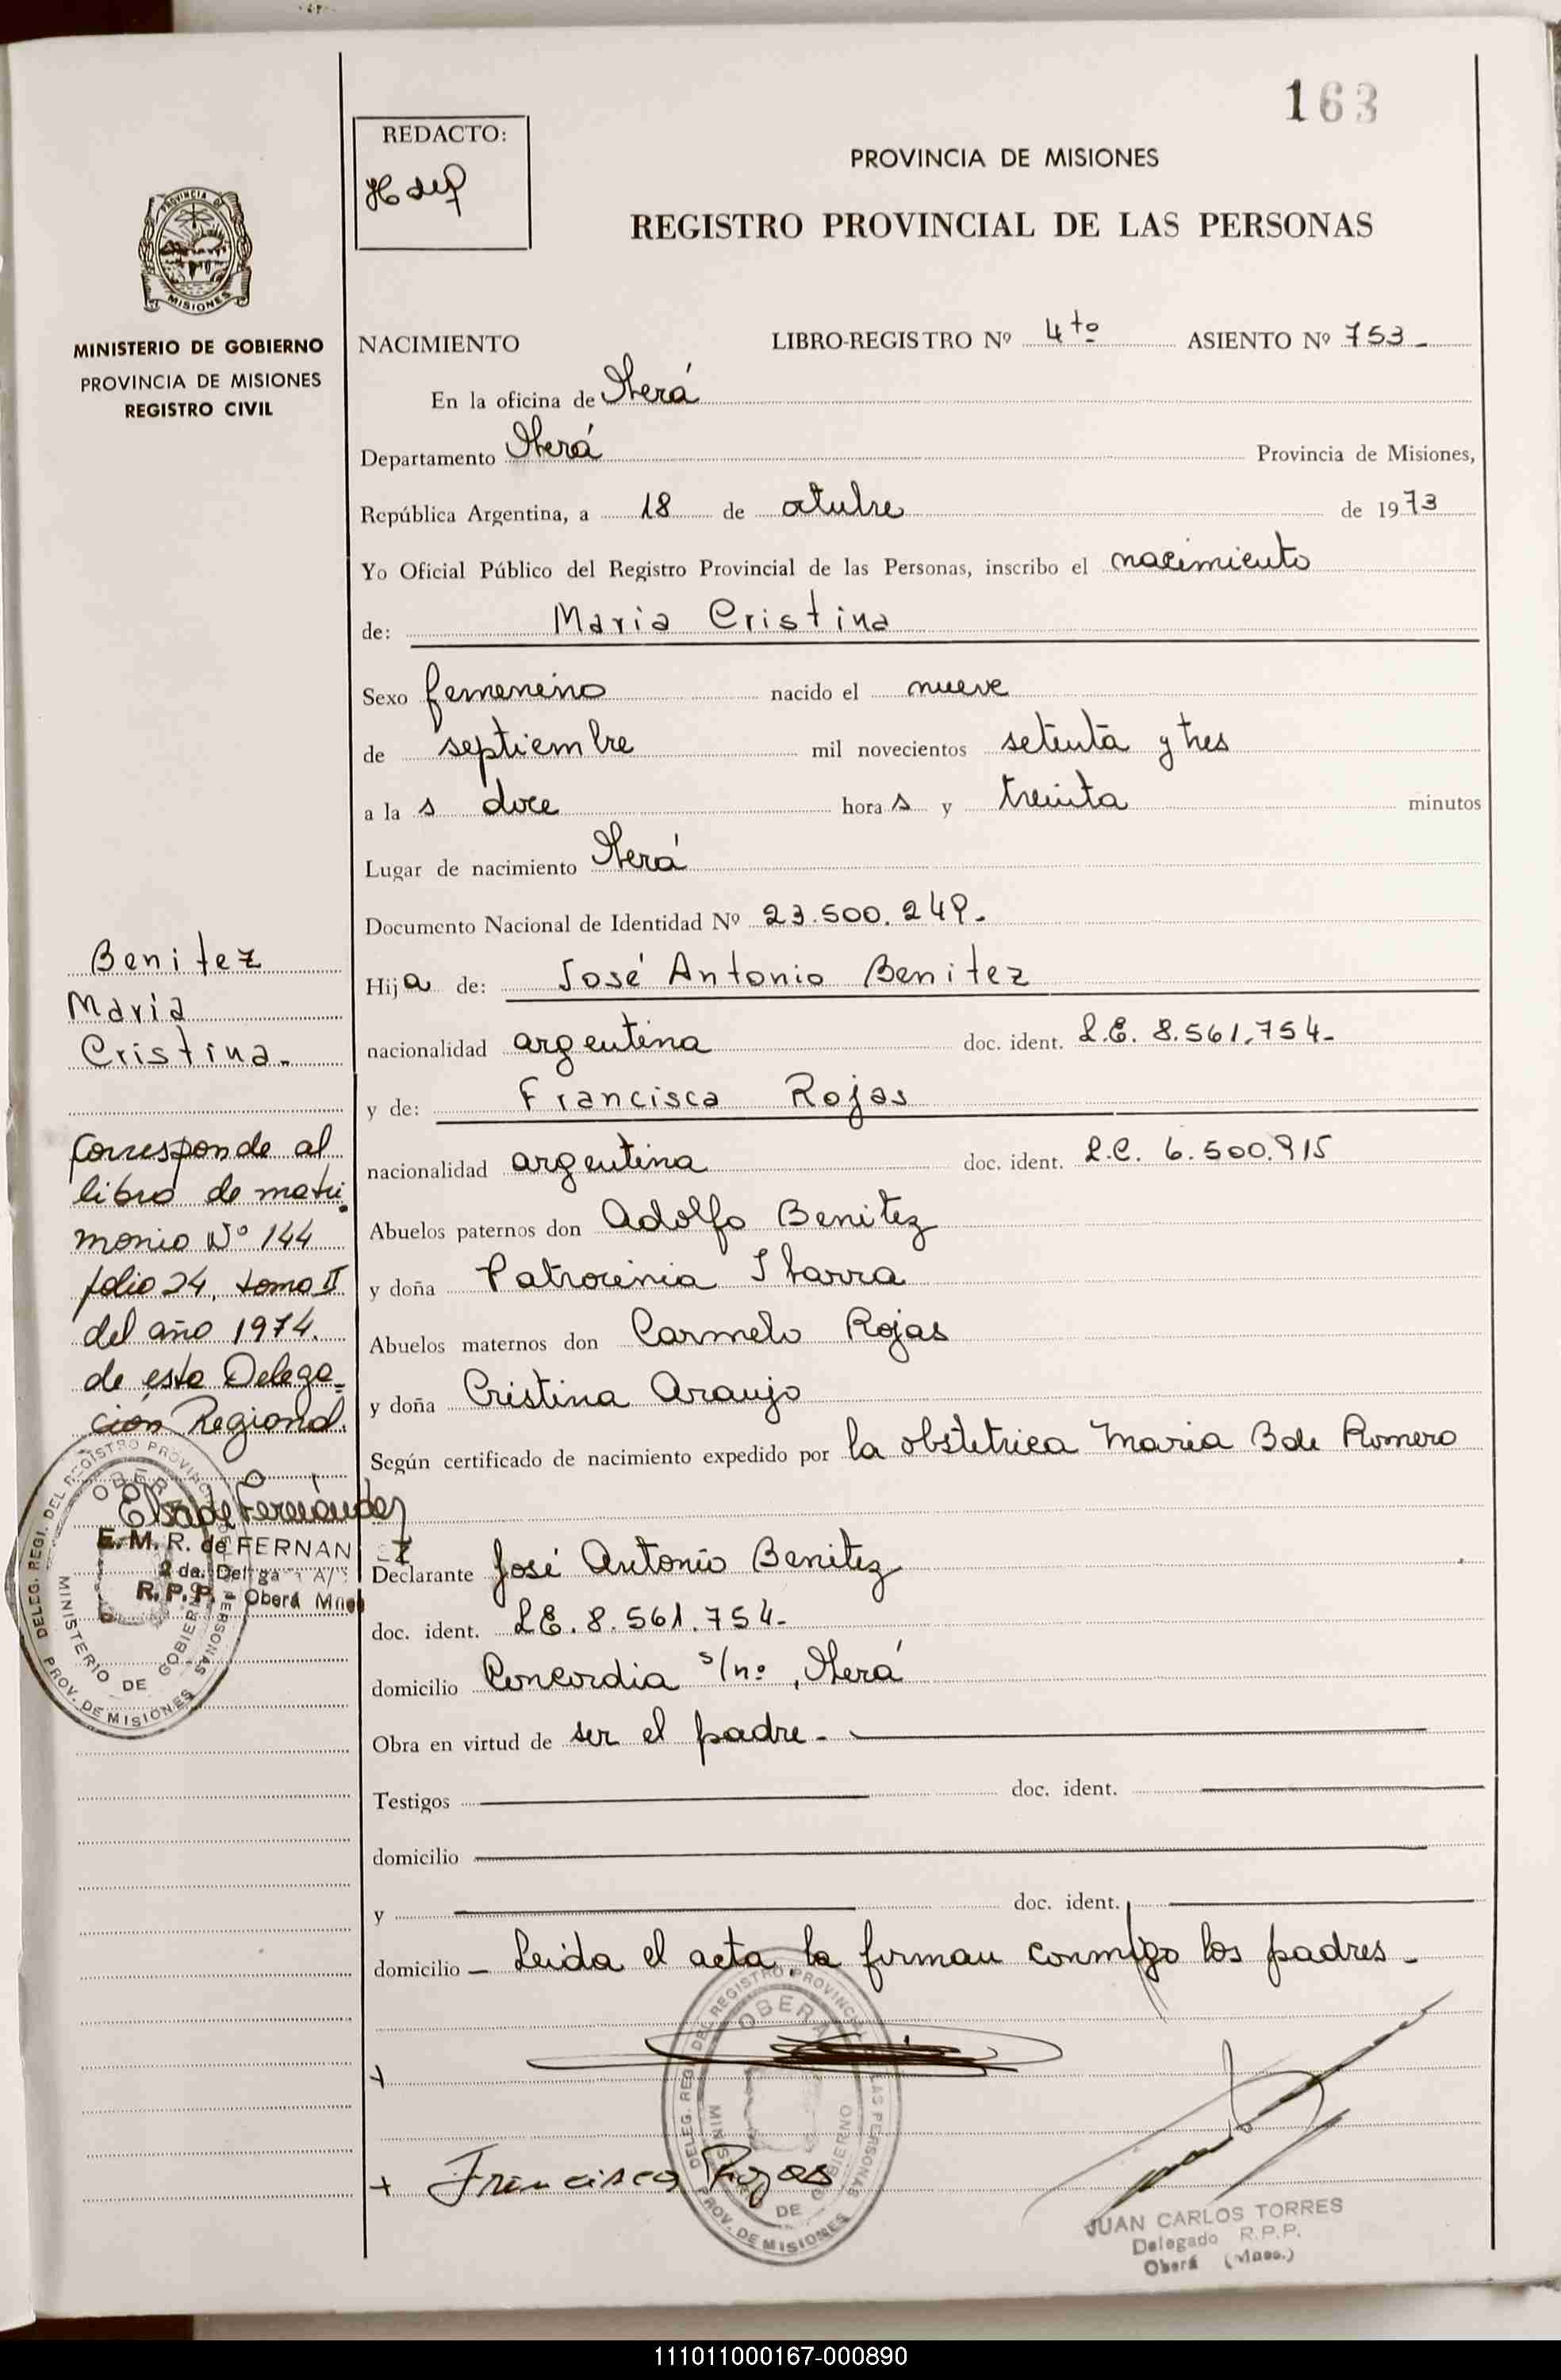 163
REDACTO:
PROVINCIA DE MISIONES
REGISTRO PROVINCIAL DE LAS PERSONAS
PROVINCIA DE
MISIONES
MINISTERIO DE GOBIERNO
PROVINCIA DE MISIONES
REGISTRO CIVIL
NACIMIENTO LIBRO-REGISTRO Nº 4to ASIENTO Nº 753-
En la oficina de Oberá
Departamento Oberá Provincia de Misiones,
República Argentina, a 18 de octubre de 1973
Yo Oficial Público del Registro Provincial de las Personas, inscribo el nacimiento
de: Maria Cristina
Sexo femenino nacido el nueve
de septiembre mil novecientos setenta y tres
a la s doce hora s y treinta minutos
Lugar de nacimiento Oberá
Documento Nacional de Identidad Nº 23.500.249.-
Hija de: José Antonio Benitez
nacionalidad argentina doc. ident. L.E. 8.561.754-
y de: Francisca Rojas
nacionalidad argentina doc. ident. L.C. 6.500.915
Abuelos paternos don Adolfo Benitez
y doña Patrocinia Ibarra
Abuelos maternos don Carmelo Rojas
y doña Cristina Araujo
Según certificado de nacimiento expedido por la obstetrica Maria B de Romero
Declarante José Antonio Benitez
doc. ident. LE. 8.561.754-
domicilio Concordia s/nº, Oberá
Obra en virtud de ser el padre-
Testigos doc. ident.
domicilio
y doc. ident.
domicilio - Leida el acta, la firman conmigo los padres-
Francisca Rojas
JUAN CARLOS TORRES
Delegado R.P.P.
Oberá (Mnes.)
Benitez
Maria
Cristina-
Corresponde al
libro de matri
monio Nº 144
folio 24, tomo II
del año 1974.
de esta Delega-
ción Regional.
Elsa de Fernandez
E. M. R. de FERNANDEZ
2da. Delegada
R.P.P. Oberá Mnes
DELEG. REGI. DEL REGISTRO PROVINCIAL DE LAS PERSONAS
OBERA
MINISTERIO DE GOBIERNO
PROV. DE MISIONES
DELEG. REGI. DEL REGISTRO PROVINCIAL DE LAS PERSONAS
OBERA
MINISTERIO DE GOBIERNO
PROV. DE MISIONES
111011000167-000890